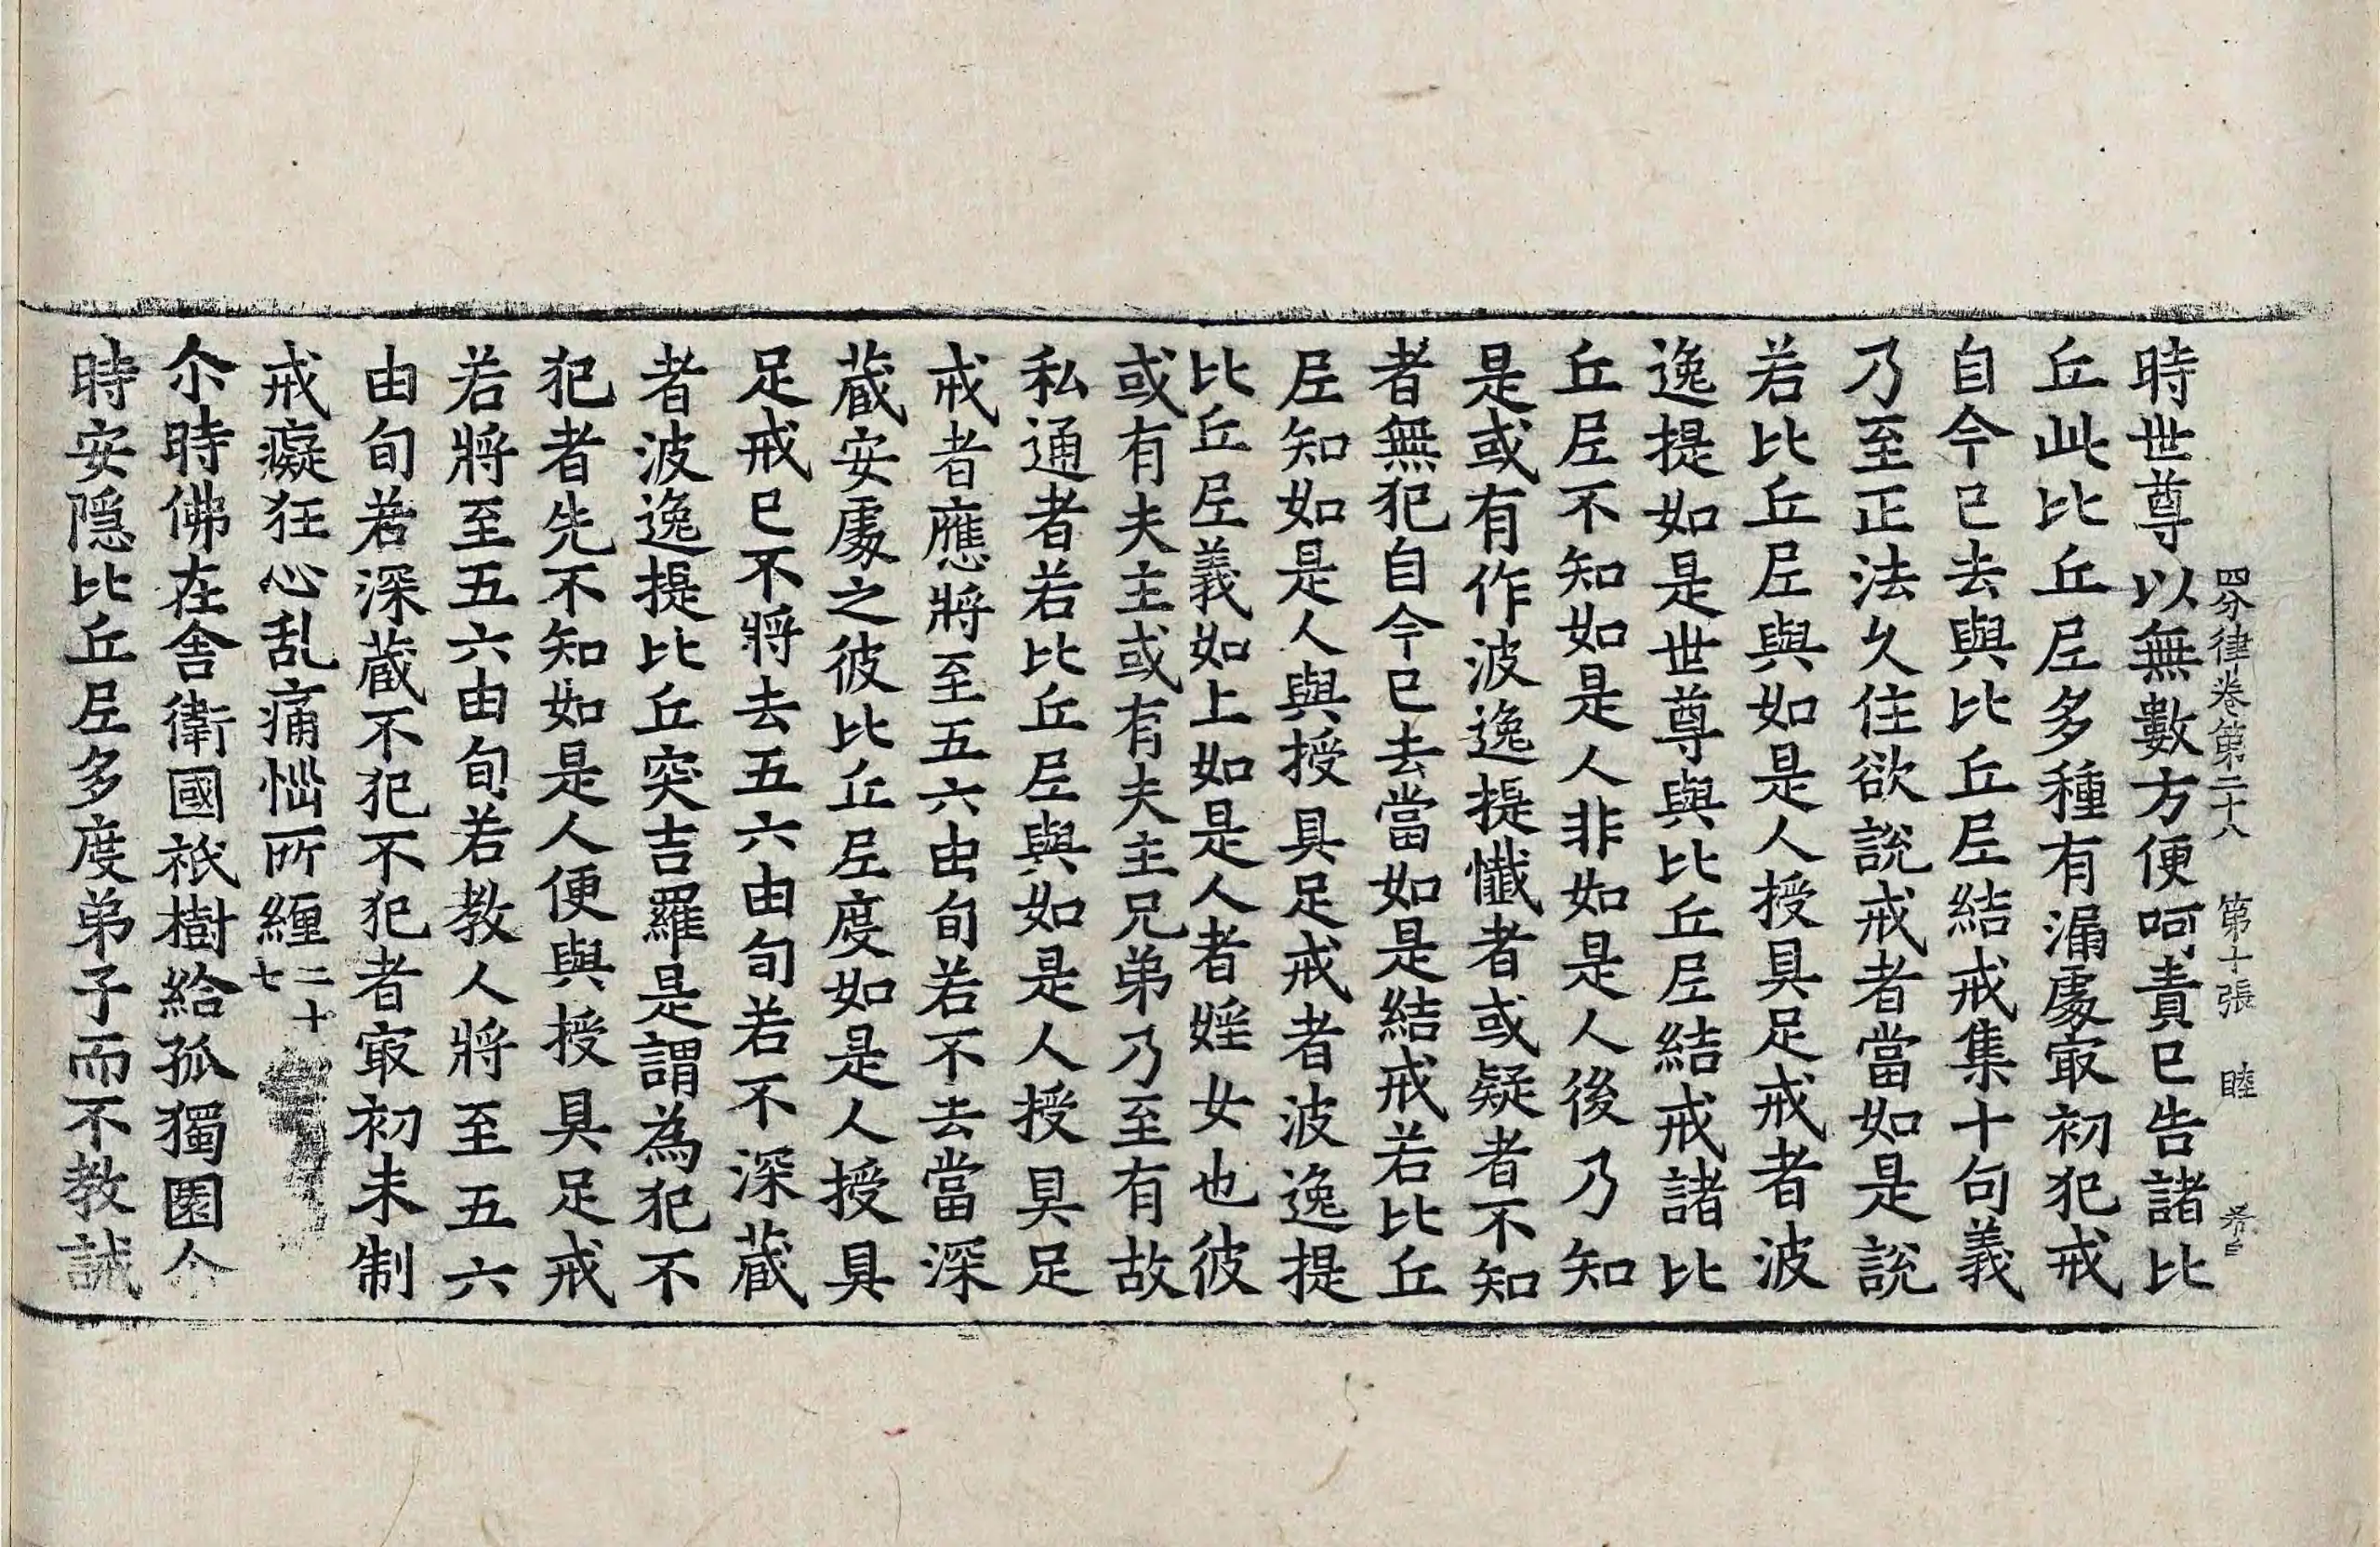 四分律卷第二十八　第十張　睦
時世尊以無數方便呵責已告諸比
丘此比丘尼多種有漏處冣初犯戒
自今已去與比丘尼結戒集十句義
乃至正法久住欲說戒者當如是說
若比丘尼與如是人授具足戒者波
逸提如是世尊與比丘尼結戒諸比
丘尼不知如是人非如是人後乃知
是或有作波逸提懺者或疑者不知
者無犯自今已去當如是結戒若比丘
尼知如是人與授具足戒者波逸提
比丘尼義如上如是人者婬女也彼
或有夫主或有夫主兄弟乃至有故
私通者若比丘尼與如是人授具足
戒者應將至五六由旬若不去當深
蔵安處之彼比丘尼度如是人授具
足戒已不將去五六由旬若不深蔵
者波逸提比丘突吉羅是謂為犯不
犯者先不知如是人便與授具足戒
若將至五六由旬若教人將至五六
由旬若深蔵不犯不犯者冣初未制
戒癡狂心乱痛惱所纏二十七
尒時佛在舍衛國祇樹給孤獨園尒
時安隠比丘尼多度弟子而不教誡